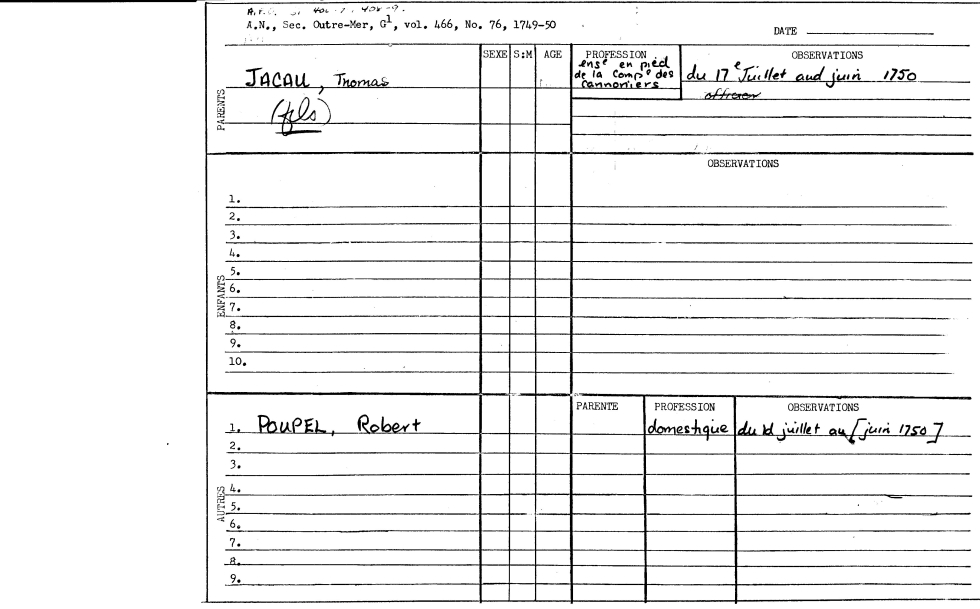 A.N., Sec. Outre-Mer, G1, vol. 466, No. 76, 1749-50
DATE
SEXE S:M AGE PROFESSION OBSERVATIONS
JACAU, Thomas
(fils)
ense en pied
de la Compe des
cannoniers
du 17e Juillet aud juin 1750
officier
PARENTS
OBSERVATIONS
1.
2.
3.
4.
5.
6.
7.
8.
9.
10.
ENFANTS
PARENTE PROFESSION OBSERVATIONS
1. POUPEL, Robert domestique du d juillet au [juin 1750]
2.
3.
4.
5.
6.
7.
8.
9.
AUTRES